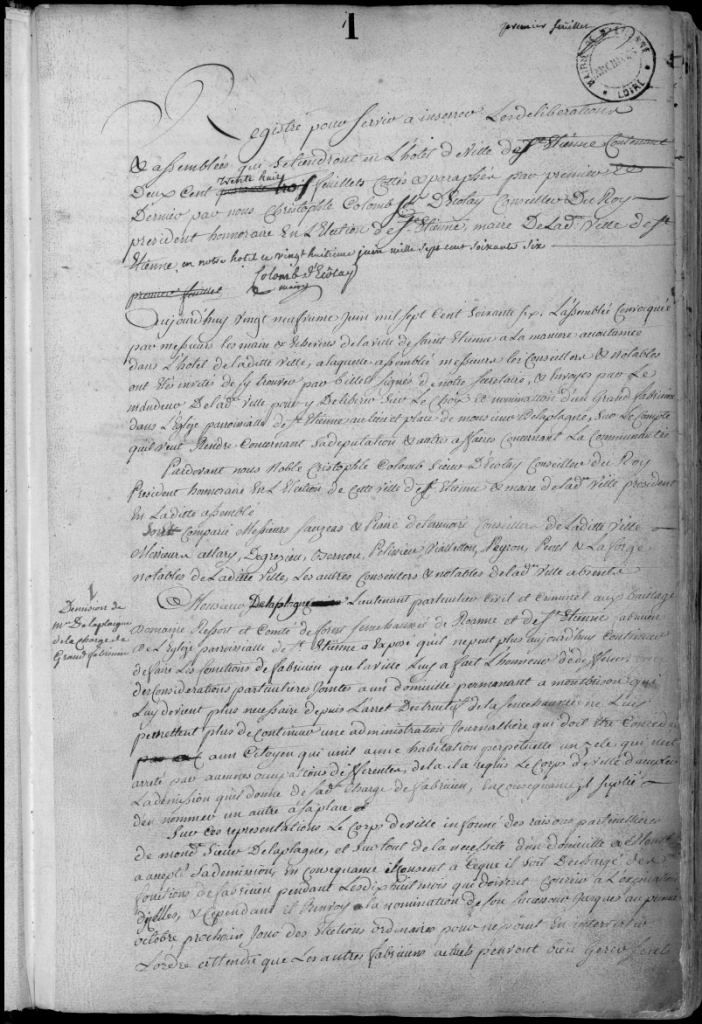 1
premier feuillet
MAIRIE DE ST ETIENNE
ARCHIVES
LOIRE
Registre pour servir a inserrer Les deliberations
& assemblées qui se tiendront en L'hotel de Ville de St. Etienne Contenant
Deux Cent trente huit feuillets Cottés & paraphés par premier Et
Dernier par nous Christophle Colomb Sr. D'Ecotay Conseiller Du Roy
president honoraire En L'Election de St. Etienne, maire De lad. Ville de St
Etienne, en notre hotel ce vingt huitieme juin mille sept cent soixante six
Colomb d'Ecotay
maire
premier feuillet
Aujourd'huy vingt neufvieme Juin mil sept Cent Soixante six. L'assemblée Convoquée
par messieurs les maire & Echevins de la ville de Saint Etienne a la maniere accoutumée
dans L'hotel de laditte Ville, a laquelle assemblée messieurs les Conseillers & Notables
ont étés invités de s'y trouver par billets signés de notre secretaire, & Envoyés par Le
mandeur De lad. Ville pour y Deliberer Sur Le Choix et nomination d'un Grand fabricien
dans L'Eglise paroissialle de St. Etienne au lieu et place de monsieur Delaplagne, Sur Le Compte
qu'il veut Rendre Concernant Sa deputation & autres affaires Concernant La Communauté
Pardevant nous Noble Cristophle Colomb Sieur D'Ecotay Conseiller du Roy
President honoraire En L'Election de Cette Ville de St. Etienne & maire de lad. Ville president
En Laditte assemblé
Sont Comparu Messieurs sauzeas & Pierre delaunoir Conseillers de Laditte Ville
Messieurs allary, Degrezieu, Peyron, & Laforge
notables de Laditte Ville, Les autres Conseillers & notables de lad. Ville absents
1
Demission de
Mr. Delaplagne
de la charge de
Grand fabricien
Monsieur Delaplagne Lieutenant particulier Civil et Criminel aux Bailliage
Domaine Ressort et Comté de forest senechaussée de Roanne et de St. Etienne fabricien
De L'Eglise paroissialle de St. Etienne a Exposé qu'il ne peut plus aujourd'huy Continuer
de faire Les fonctions de fabricien que la ville Luy a fait L'honneur De
des Considerations particulieres Jointes a un domicille permanant a montbrison qui
Luy devient plus necessaire depuis L'arret Destructif de la senechaussée ne Luy
permettent plus de Continuer une administration Journalliere qui doit être
a un Citoyen qui unit a une habitation perpetuelle un zele qui n'est
arreté par aucunes occupations differentes, de la il a requis Le Corps de Ville d'accepter
La demission qu'il donne de sad. Charge de fabricien, En consequance
d'en nommer un autre a sa place
Sur Ces representations Le Corps de ville informé des raisons particulieres
de mond. Sieur Delaplagne, et Sur tout de la necessité d'un domicille
a accepté Sa demission, En consequance il Consent a Ceque il Soit Dechargé des
fonctions de fabricien pendant Les dix huit mois qui doivent Courir a L'expiration
d'icelles, & Cependant il Renvoy a la nomination de son successeur Jusques au premier
octobre prochain Jour des Elections ordinaires pour ne point En intervertir
L'ordre attendu que Les autres fabriciens actuels peuvent